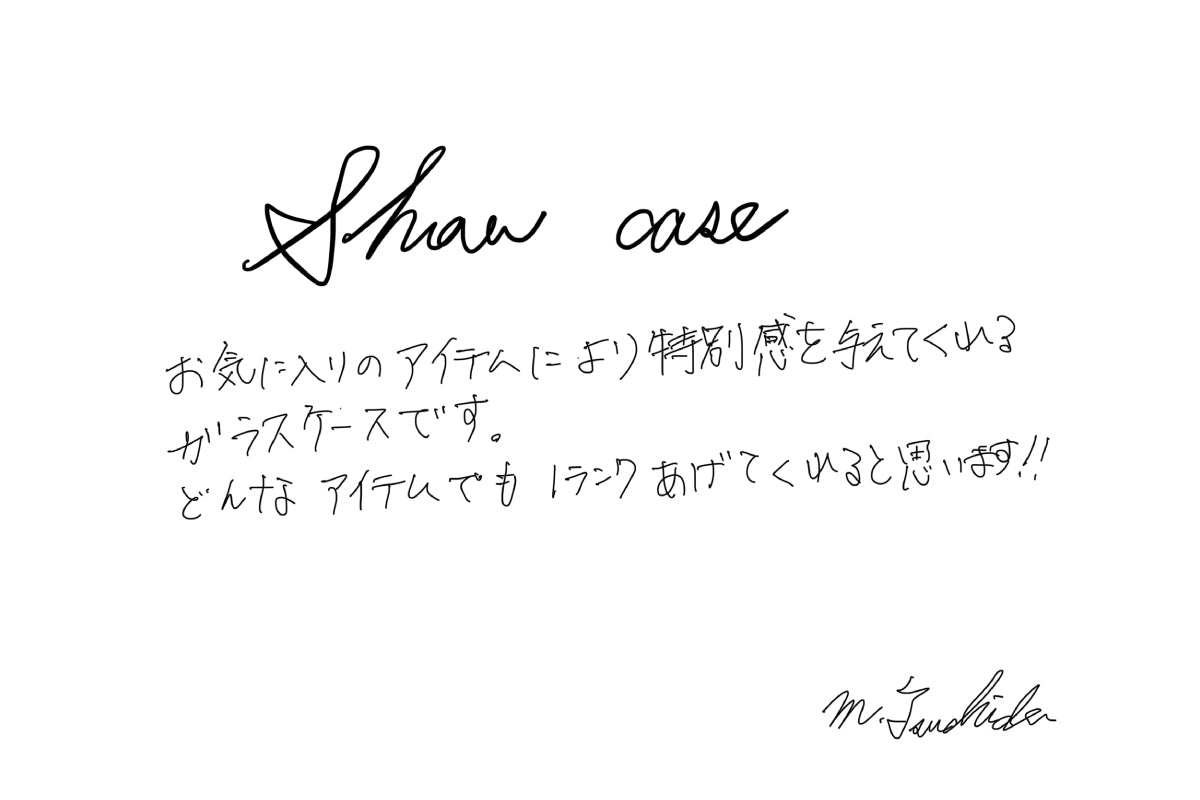 Show case
お気に入りのアイテムにより特別感を与えてくれる
ガラスケースです。
どんなアイテムでも1ランクあげてくれると思います!!
M.Tsuchida